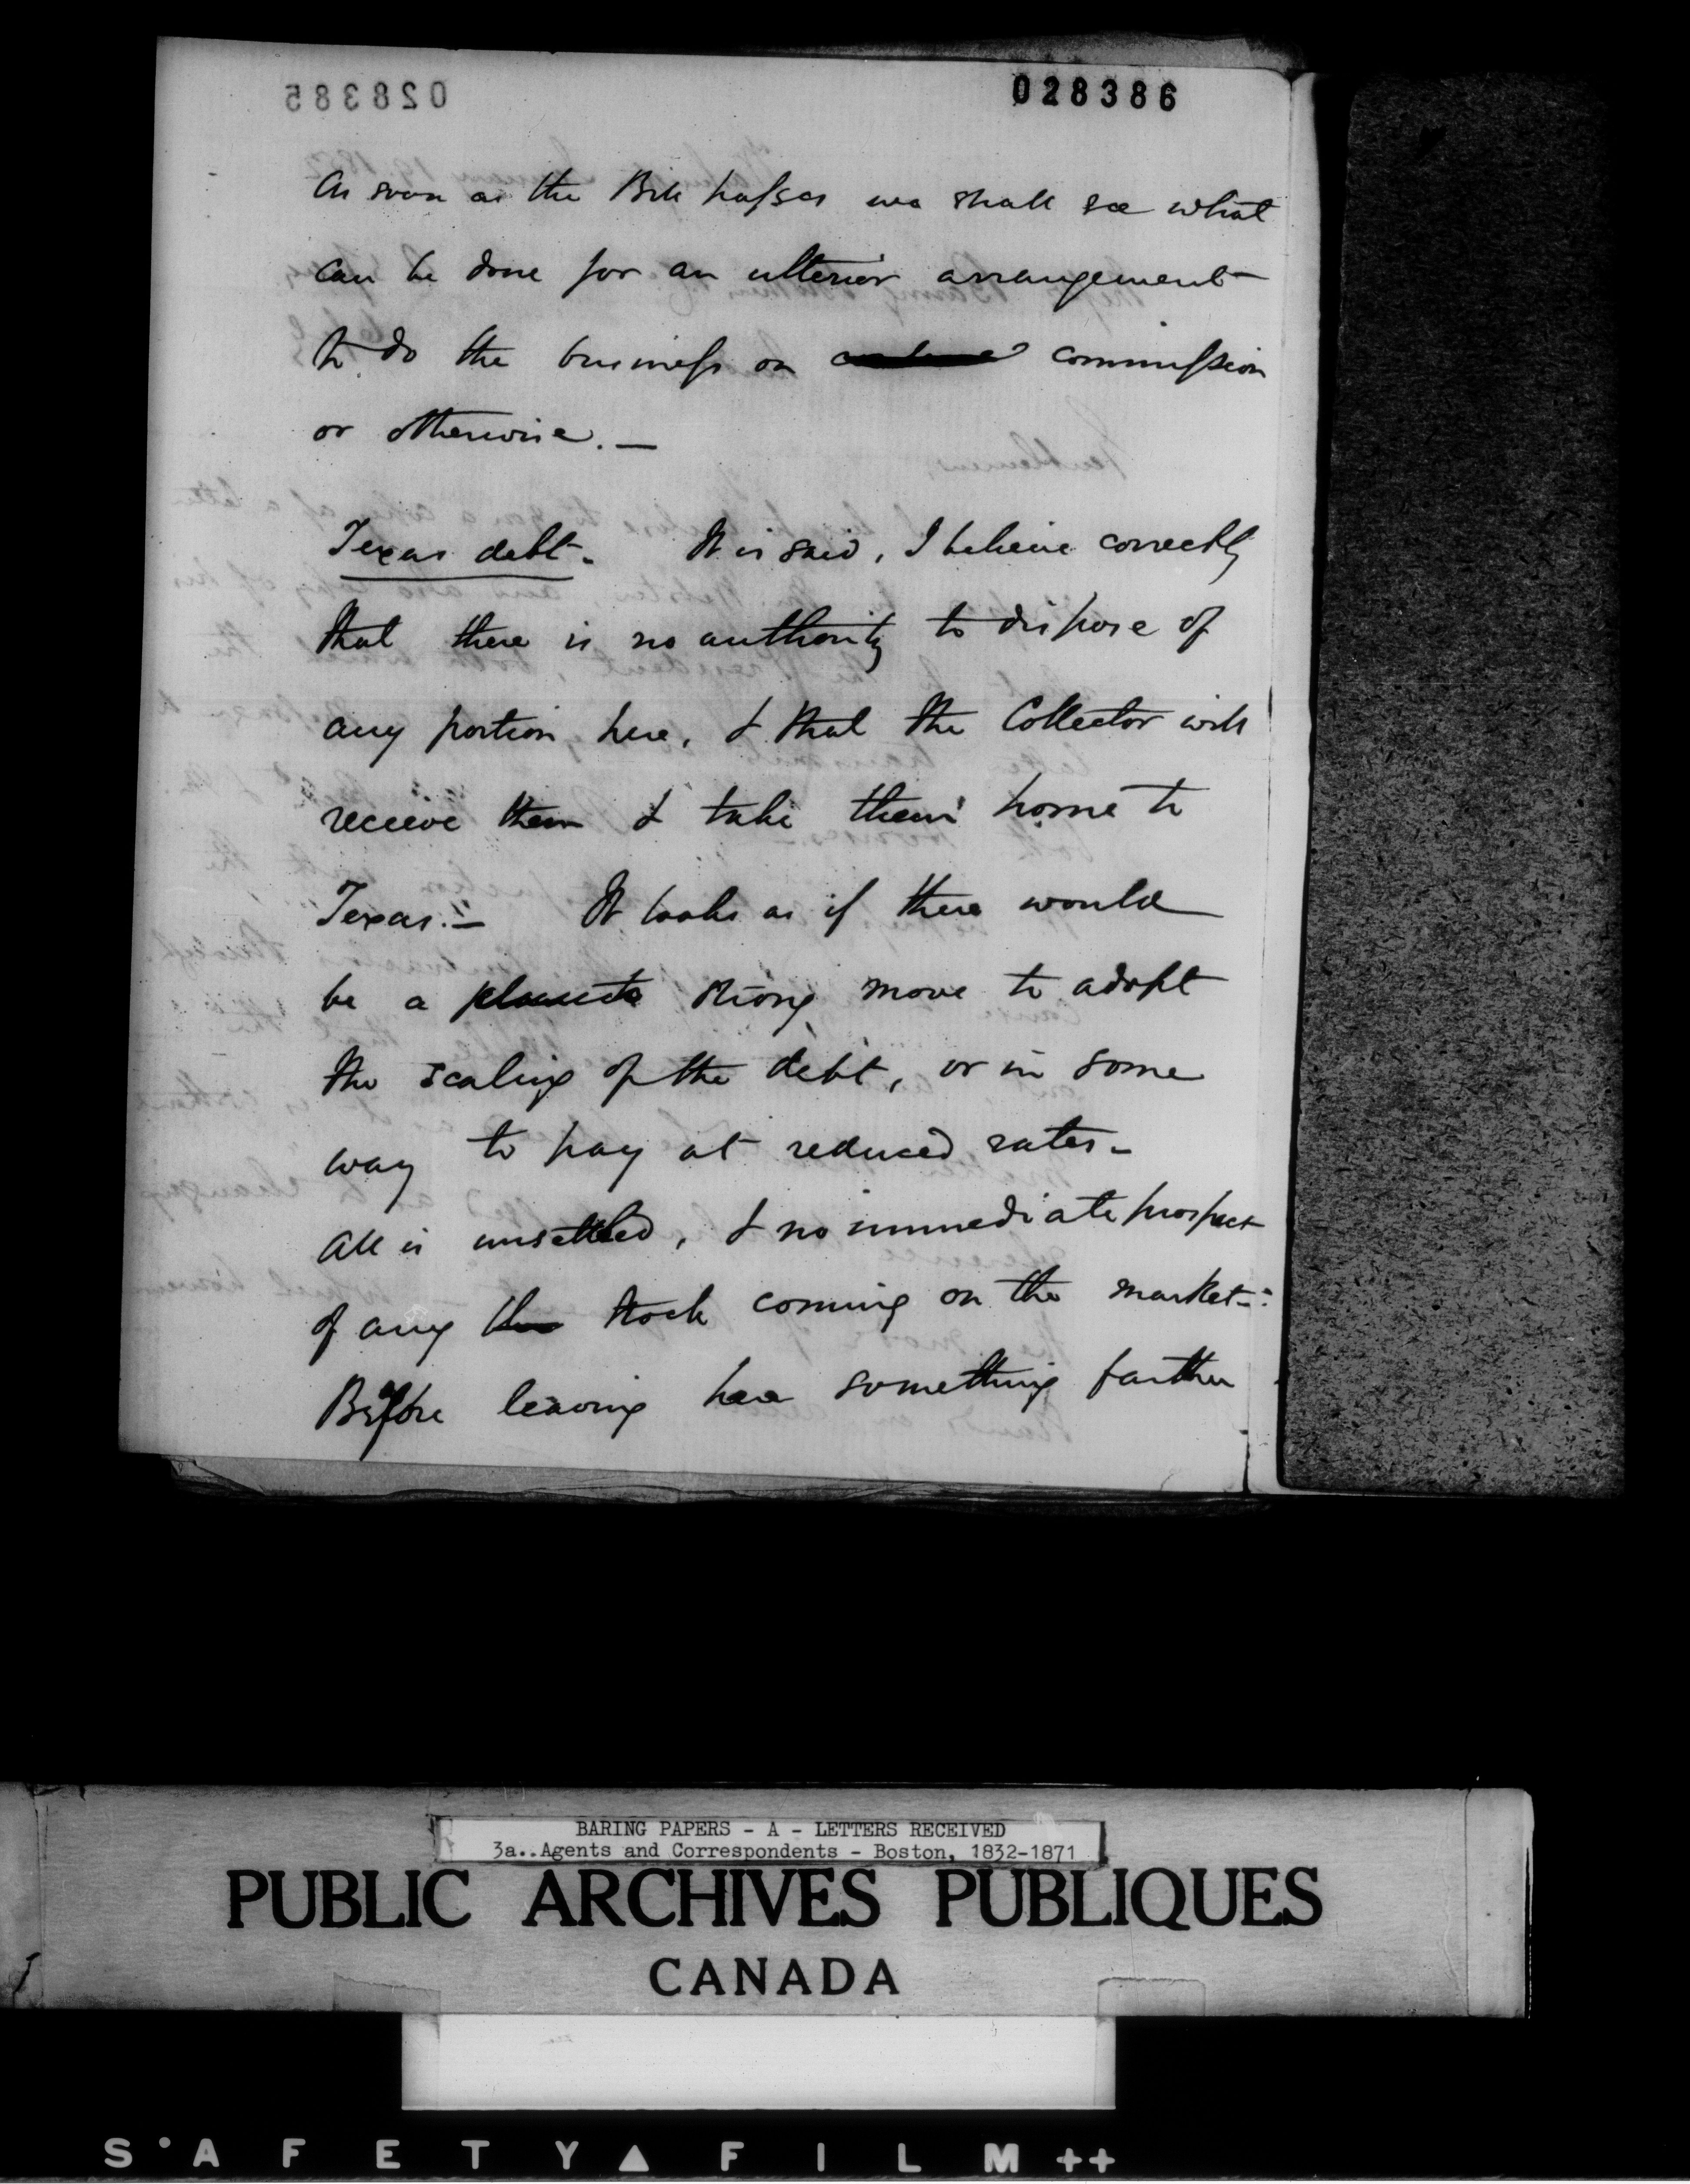 028385
028386
As soon as the Bill passes we shall see what
can be done for an ulterior arrangement
to do the business on commission
or otherwise. —
Texas debt - It is said, I believe correctly
that there is no authority to dispose of
any portion here, & that the Collector will
receive them & take them home to
Texas. — It looks as if there would
be a strong move to adopt
the scaling of the debt, or in some
way to pay at reduced rates -
All is unsettled, & no immediate prospect
of any stock coming on the market -
Before leaving here something farther
BARING PAPERS - A - LETTERS RECEIVED
3a..Agents and Correspondents - Boston, 1832-1871
PUBLIC ARCHIVES PUBLIQUES
CANADA
S•A F E T Y▲ F I L M ++